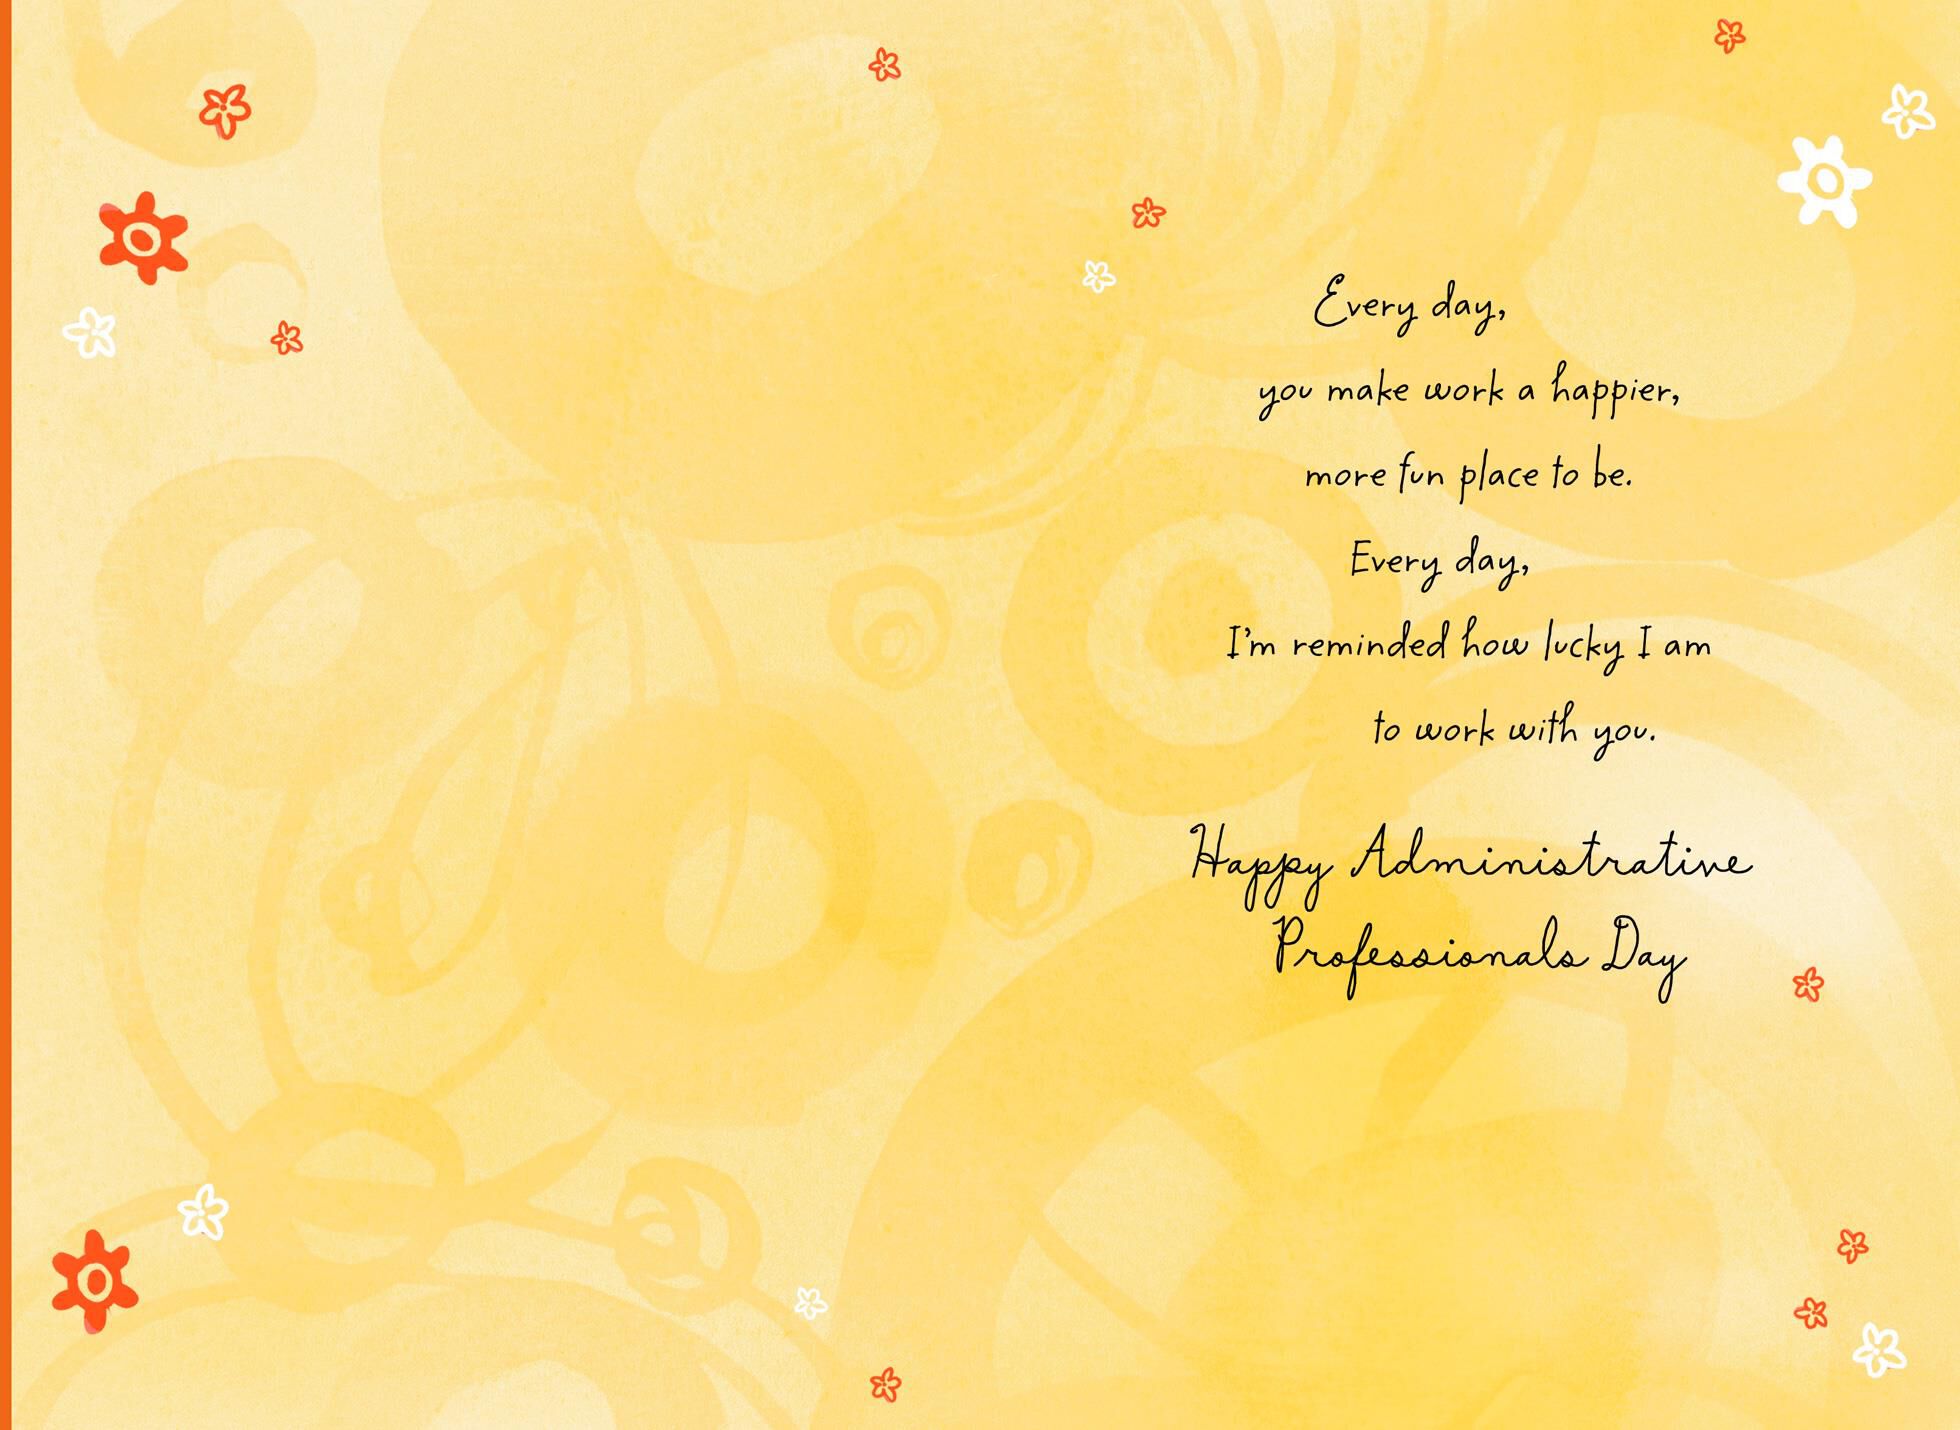 Every day,
you make work a happier,
more fun place to be.
Every day,
I'm reminded how lucky I am
to work with you.
Happy Administrative
Professionals Day